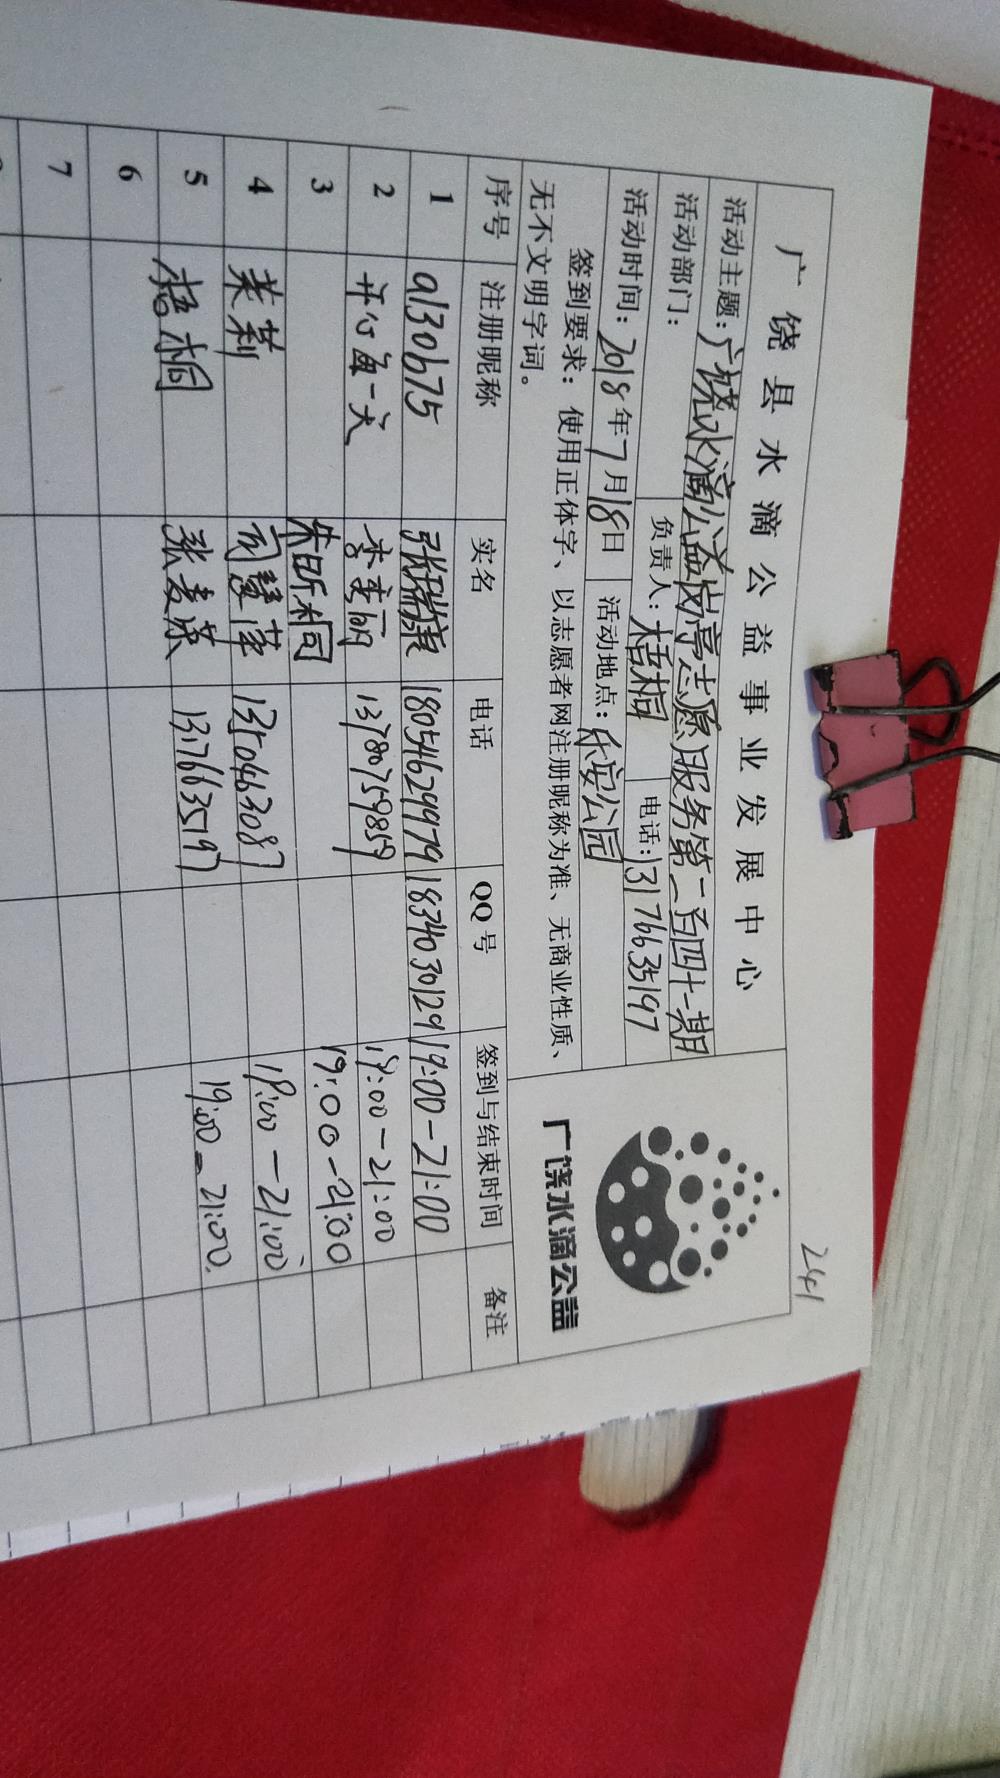 241
广饶县水滴公益事业发展中心
活动主题：广饶水滴公益岗亭志愿服务第二百四十一期
活动部门： 负责人：梧桐 电话：13176635197
活动时间：2018年7月18日 活动地点：乐安公园
签到要求：使用正体字、以志愿者网注册昵称为准、无商业性质、
无不文明字词。
广饶水滴公益
序号 注册昵称 实名 电话 QQ号 签到与结束时间 备注
1 a130b75 张瑞康 18054629979 1834030129 19:00-21:00
2 开心每一天 李秀丽 13780759859 19:00-21:00
3 朱昕桐 19:00-21:00
4 茉莉 13504463087 19:00-21:00
5 梧桐 张麦荣 13176635197 19:00-21:00.
6
7